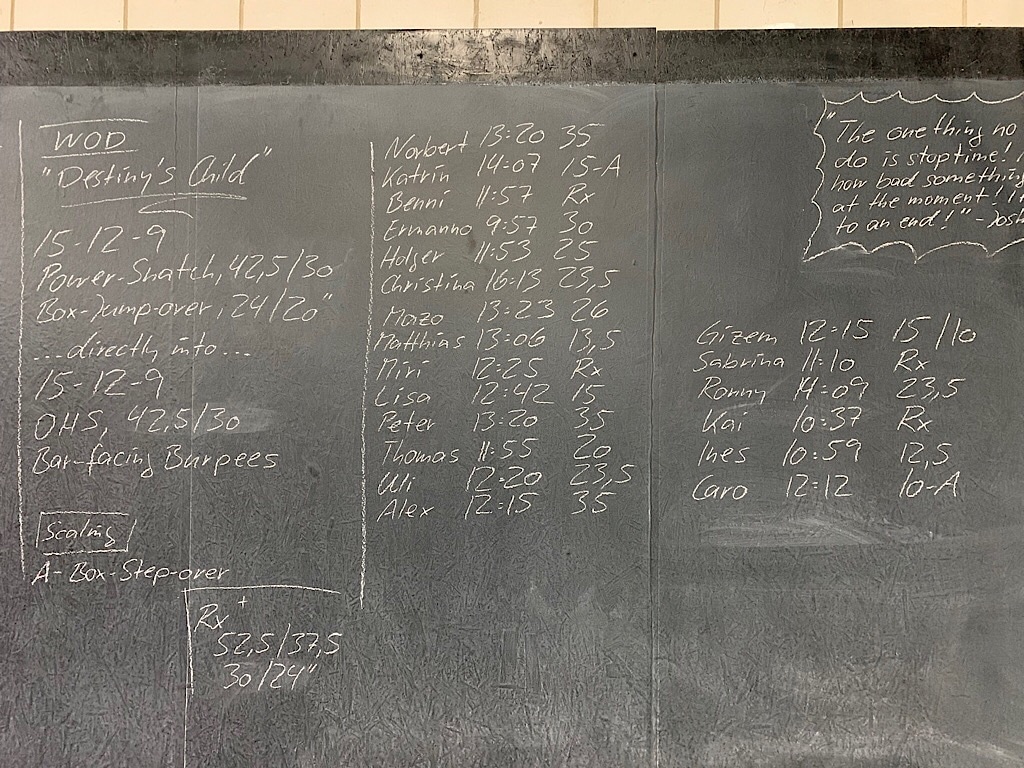 WOD
"Destiny's Child"
15-12-9
Power-Snatch, 42,5/30
Box-Jump-over, 24/20"
...directly into...
15-12-9
OHS, 42,5/30
Bar-facing Burpees
Scaling
A-Box-Step-over
Rx+
52,5/37,5
30/24"
Norbert 13:20 35
Katrin 14:07 15-A
Benni 11:57 Rx
Ermanno 9:57 30
Holger 11:53 25
Christina 16:13 23,5
Mazo 13:23 26
Matthias 13:06 13,5
Miri 12:25 Rx
Lisa 12:42 15
Peter 13:20 35
Thomas 11:55 20
Uli 12:20 23,5
Alex 12:15 35
Gizem 12:15 15/10
Sabrina 11:10 Rx
Ronny 14:09 23,5
Kai 10:37 Rx
Ines 10:59 12,5
Caro 12:12 10-A
"The one thing no
do is stop time!
how bad something
at the moment!
to an end!" - Josh